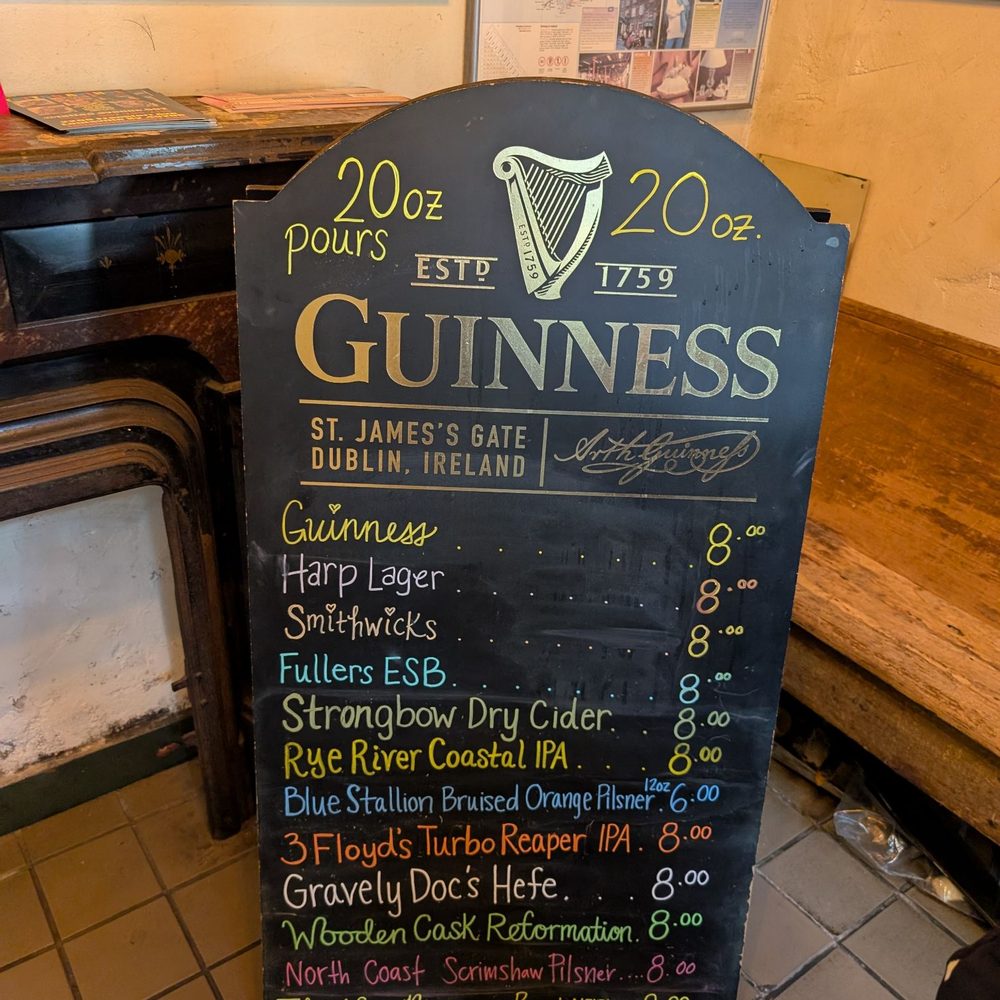 20oz
pours
20oz.
ESTD 1759
ESTD 1759
GUINNESS
ST. JAMES'S GATE
DUBLIN, IRELAND
Arth Guinness
Guinness . . . . . . 8.00
Harp Lager . . . . . . 8.00
Smithwicks . . . . . . 8.00
Fullers ESB . . . . . . . 8.00
Strongbow Dry Cider. . . 8.00
Rye River Coastal IPA . . . 8.00
Blue Stallion Bruised Orange Pilsner 12oz . 6.00
3 Floyd's Turbo Reaper IPA . 8.00
Gravely Doc's Hefe . . . 8.00
Wooden Cask Reformation. 8.00
North Coast Scrimshaw Pilsner.... 8.00